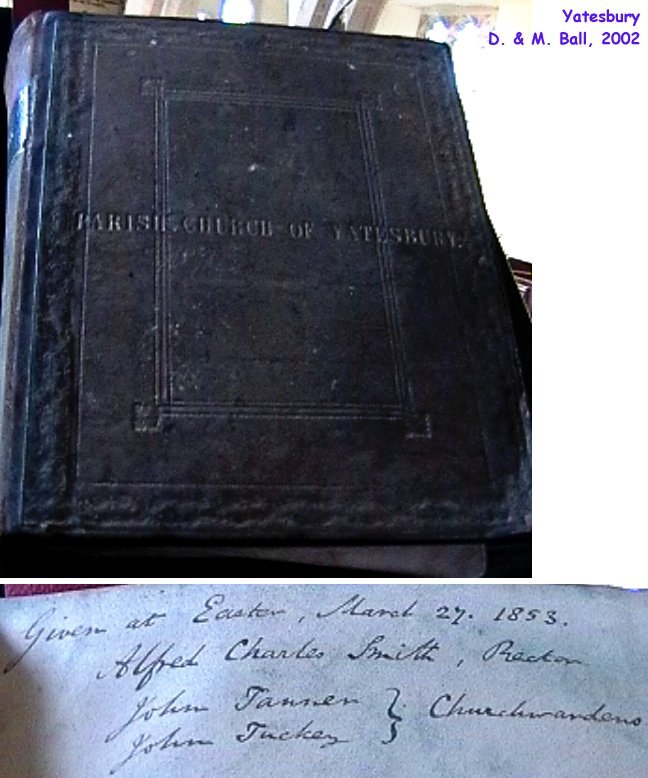 Yatesbury
D. & M. Ball, 2002
PARISH CHURCH OF YATESBURY.
Given at Easter, March 27. 1853.
Alfred Charles Smith, Rector
John Tanner } Churchwardens
John Tuckey